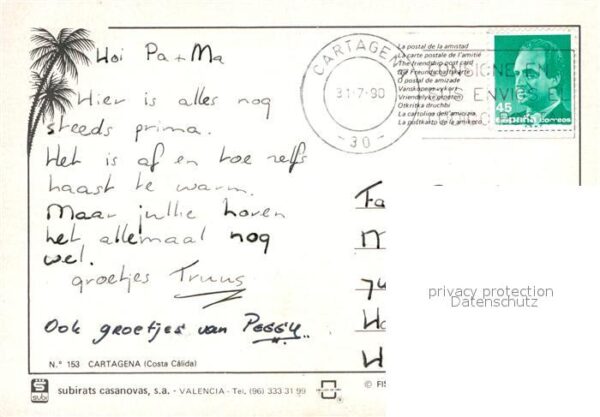 Hoi Pa + Ma
Hier is alles nog
steeds prima.
Het is af en toe zelfs
haast te warm.
Maar jullie horen
het allemaal nog
wel.
groetjes Truus
Ook groetjes van PEGGY
N.º 153 CARTAGENA (Costa Cálida)
subi
subirats casanovas, s.a. - VALENCIA - Tel. (96) 333 31 99
© FIS
La postal de la amistad
La carte postale de l'amitié
The friendship post card
Die Freundschaftskarte
O postal de amizade
Vanskapens vykort
Otkritka druchbi
La cartolina dell'amicizia
La postkarto de la amikero
CARTAGEN
31-7-90
- 30 -
CONSIGNE EN
ENVI
45
españa correos
Fa
M
74
Ho
H
privacy protection
Datenschutz